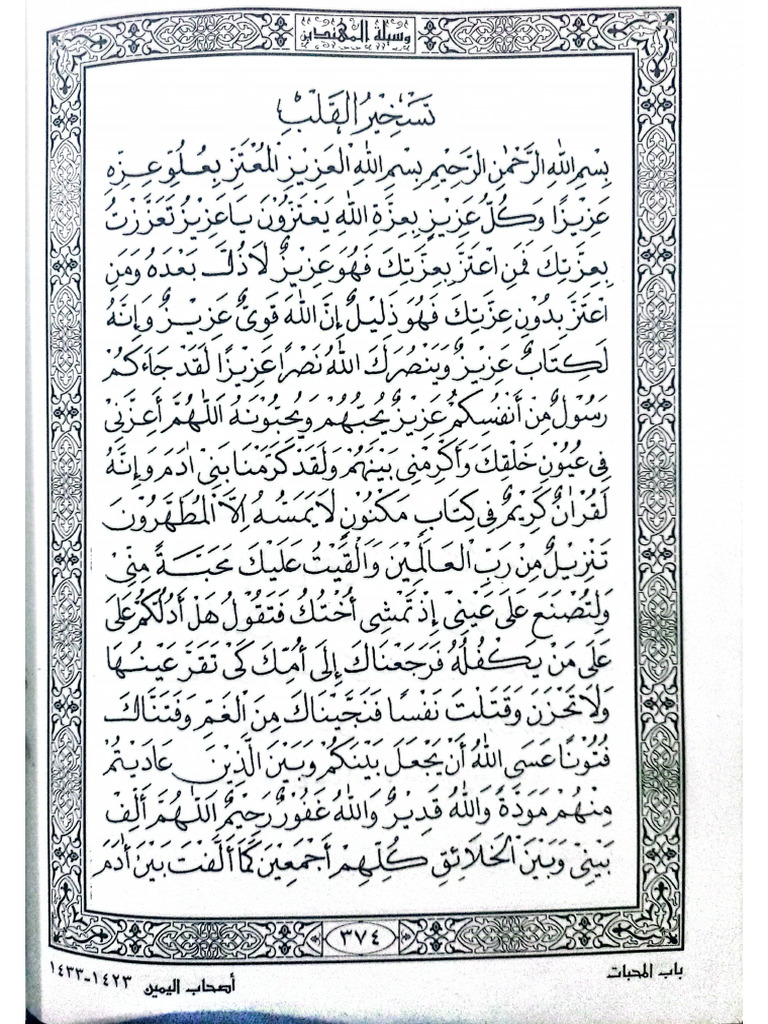 وسيلة المهتدين
تَسْخِيرُ الْقَلْبِ
بِسْمِ اللهِ الرَّحْمٰنِ الرَّحِيمِ بِسْمِ اللهِ الْعَزِيزِ الْمُعْتَزِّ بِعُلُوِّ عِزِّهِ
عَزِيزًا وَكُلُّ عَزِيزٍ بِعِزَّةِ اللهِ يَعْتَزُّونَ يَا عَزِيزُ تَعَزَّزْتُ
بِعِزَّتِكَ فَمَنِ اعْتَزَّ بِعِزَّتِكَ فَهُوَ عَزِيزٌ لَا ذُلَّ بَعْدَهُ وَمَنِ
اعْتَزَّ بِدُونِ عِزَّتِكَ فَهُوَ ذَلِيْلٌ إِنَّ اللهَ قَوِىٌّ عَزِيزٌ وَإِنَّهُ
لَكِتَابٌ عَزِيزٌ وَيَنْصُرَكَ اللهُ نَصْرًا عَزِيزًا لَقَدْ جَاءَكُمْ
رَسُولٌ مِنْ أَنْفُسِكُمْ عَزِيزٌ يُحِبُّهُمْ وَيُحِبُّونَهُ اَللّٰهُمَّ أَعِزَّنِى
فِى عُيُونِ خَلْقِكَ وَأَكْرِمْنِى بَيْنَهُمْ وَلَقَدْ كَرَّمْنَا بَنِى اٰدَمَ وَإِنَّهُ
لَقُرْاٰنٌ كَرِيْمٌ فِى كِتَابٍ مَكْنُوْنٍ لَا يَمَسُّهُ اِلَّا الْمُطَهَّرُونَ
تَنْزِيلٌ مِنْ رَبِّ الْعَالَمِيْنَ وَأَلْقَيْتُ عَلَيْكَ مَحَبَّةً مِنِّىْ
وَلِتُصْنَعَ عَلَى عَيْنِىْ إِذْ تَمْشِى أُخْتُكَ فَتَقُولُ هَلْ أَدُلُّكُمْ عَلَى
عَلَى مَنْ يَكْفُلُهُ فَرَجَعْنَاكَ إِلَى أُمِّكَ كَىْ تَقَرَّ عَيْنُهَا
وَلَا تَحْزَنَ وَقَتَلْتَ نَفْسًا فَنَجَّيْنَاكَ مِنَ الْغَمِّ وَفَتَنَّاكَ
فُتُوْنًا عَسَى اللهُ أَنْ يَجْعَلَ بَيْنَكُمْ وَبَيْنَ الَّذِيْنَ عَادَيْتُمْ
مِنْهُمْ مَوَدَّةً وَاللهُ قَدِيْرٌ وَاللهُ غَفُوْرٌ رَحِيْمٌ اَللّٰهُمَّ أَلِّفْ
بَيْنِى وَبَيْنَ الْخَلَائِقِ كُلِّهِمْ أَجْمَعِيْنَ كَمَا أَلَّفْتَ بَيْنَ اٰدَمَ
٣٧٤
باب المحبات
أصحاب اليمين ١٤٢٣-١٤٣٣